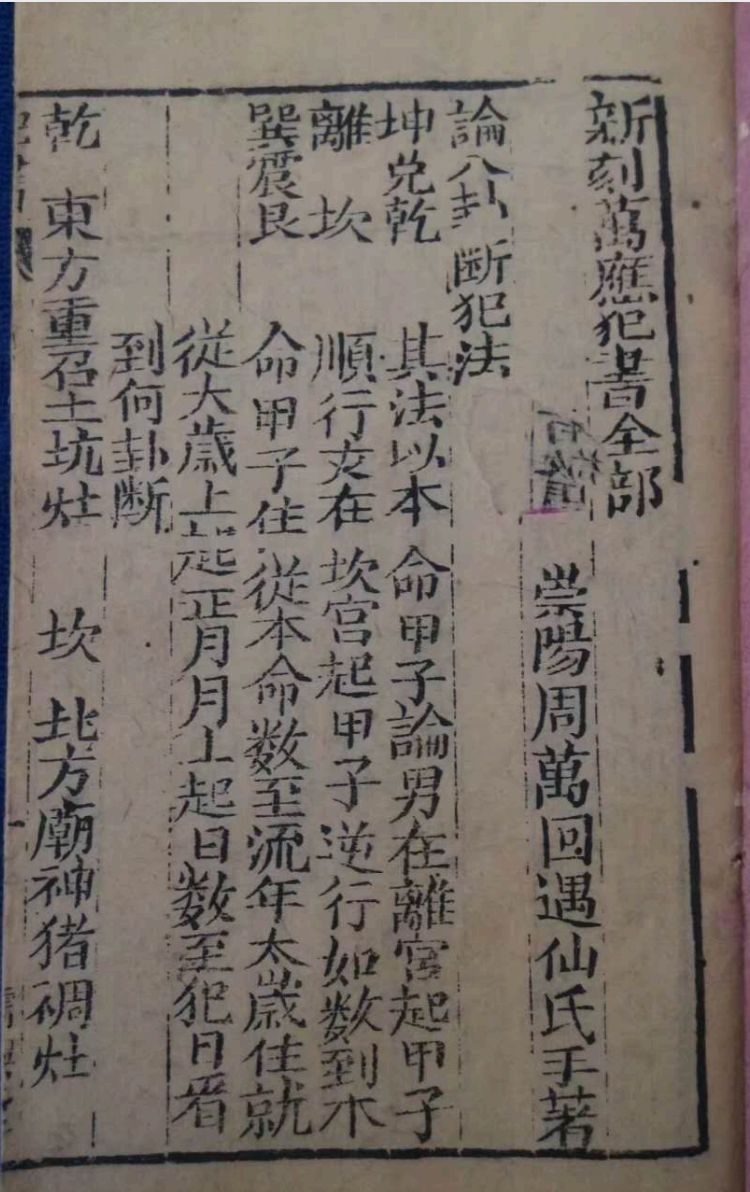 新刻萬應犯書全部
崇陽周萬回遇仙氏手著
論八卦断犯法
坤兌乾 其法以本命甲子論男在離宫起甲子
離 坎 順行女在坎宫起甲子逆行如数到本
巽震艮 命甲子住從本命数至流年太歲住就
從大歲上起正月月上起日数至犯日看
到何卦断
乾 東方重召土坑灶 坎 北方廟神猪禂灶